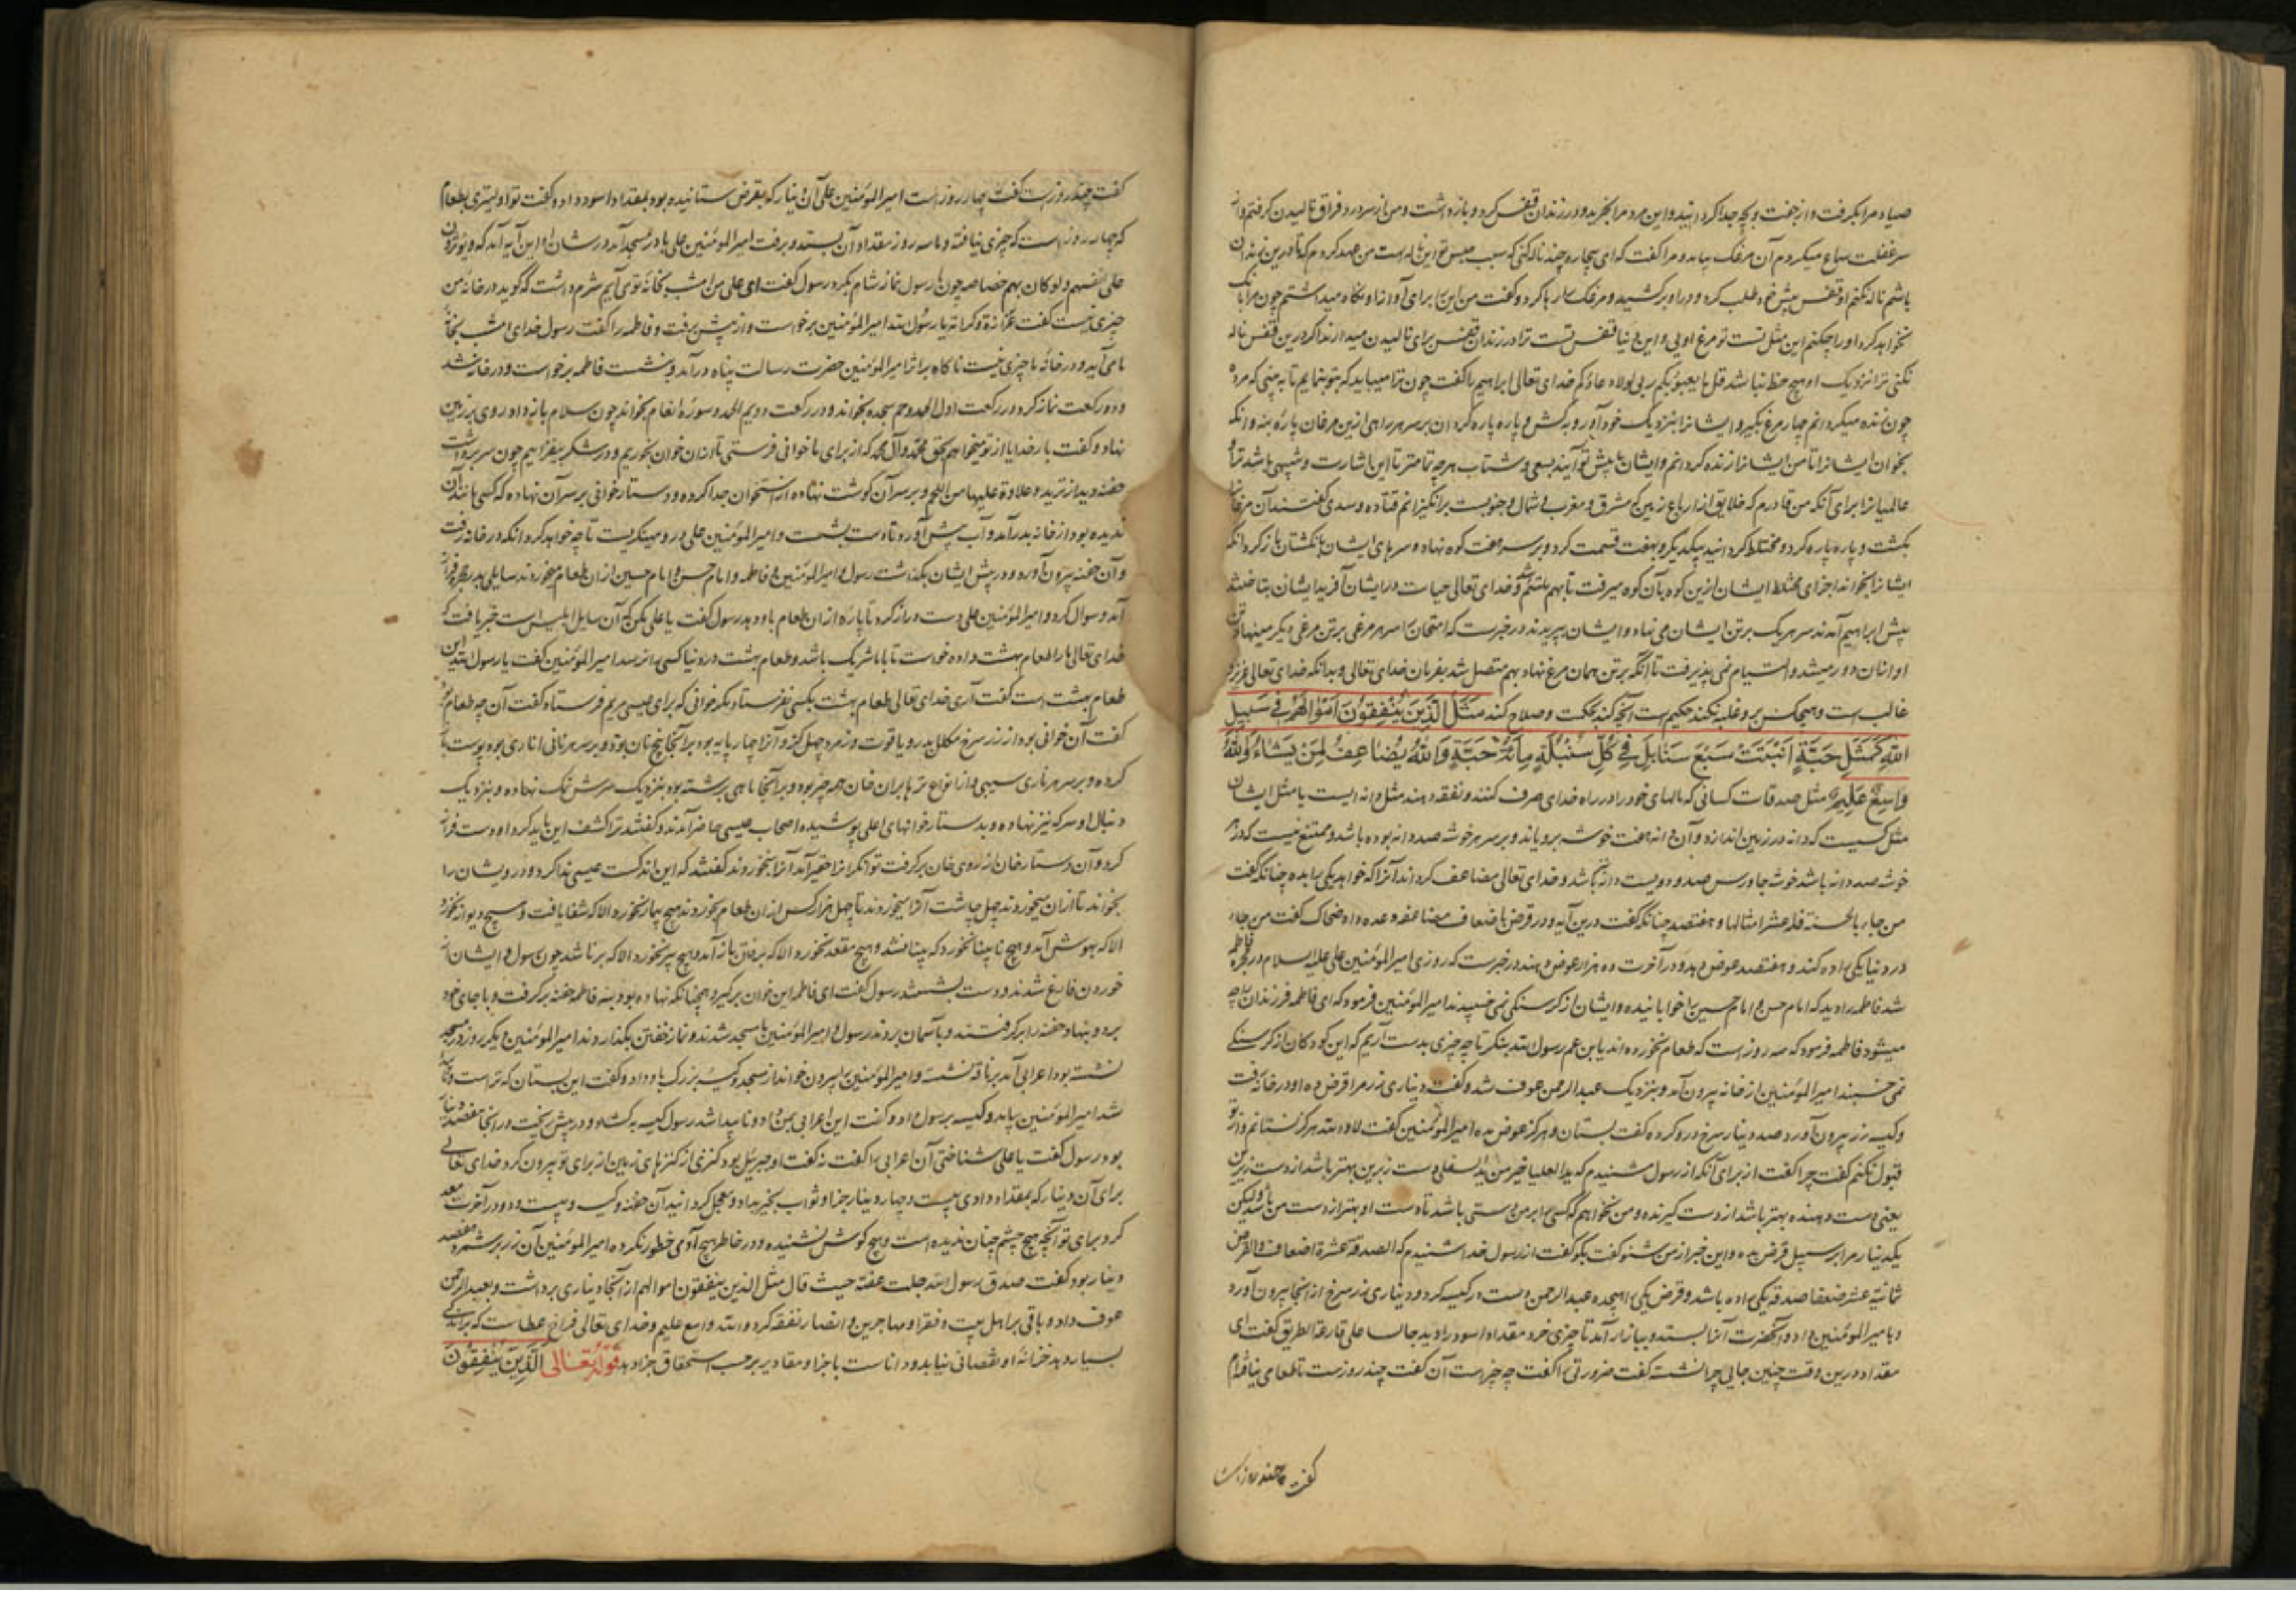 صیاد مرا بگرفت و از جفت و بچه جدا گردانید و این مرد مرا بخرید و در زندان قفس کرد و بازداشت و من از سر درد فراق نالیدن گرفتم و از
سر غفلت سماع میکردم آن مرغک بیامد و مرا گفت که ای بیچاره چند ناله کنی که سبب حبس تو این ناله است من عهد کردم که تا درین زندان
باشم ناله نکنم او قفس پیش خود طلب کرد و در او برکشید و مرغک را رها کرد و گفت من این را برای آواز او نگاه میداشتم چون مرا بانگ
نخواهد کرد او را چکنم این مثل تست تو مرغ اویی و این دنیا قفس تست ترا در زندان قفس برای نالیدن میدارند اگر درین قفس ناله
نکنی ترا نزدیک او هیچ حظ نباشد قل ما یعبؤ بکم ربی لولا دعاؤکم خدای تعالی ابراهیم را گفت چون ترا میباید که بتو بنمایم تا به بینی که مرده
چون زنده میگردانم چهار مرغ بگیر و ایشانرا بنزدیک خود آور و بکش و پاره پاره گردان بر سر هر راهی ازین مرغان پارۀ بنه و آنگه
بخوان ایشانرا تا من ایشانرا زنده گردانم و ایشان پیش تو آیند بسعی و شتاب هر چه تمامتر تا این اشارت و تنبیهی باشد ترا و
عالمیانرا برای آنکه من قادرم که خلایق را از ارباع زمین که مشرق و مغرب و شمال و جنوبست برانگیزانم قتاده و سدی گفتند آن مرغان
بکشت و پاره پاره کرد و مختلط گردانید بیکدیگر و بهفت قسمت کرد و بر سر هفت کوه نهاد و سرهای ایشان بانگشتان باز کرد و آنگه
ایشانرا بخواند اجزای مختلط ایشان ازین کوه بآن کوه میرفت تا بهم ملتئم شد و خدای تعالی حیات در ایشان آفرید ایشان بتاختند
پیش ابراهیم آمدند سر هر یک بر تن ایشان می نهاد و ایشان بپریدند در خبرست که امتحان را سر هر مرغی بر تن مرغی دیگر مینهاد تن
او از آن دور میشد و التیام نمی پذیرفت تا آنگه بر تن همان مرغ نهاد بهم متصل شد بفرمان خدای تعالی و بدانکه خدای تعالی عزیز و
غالب است و هیچکس برو غلبه نکند حکیم است آنچه کند بحکمت و صلاح کند مَثَلُ الَّذِینَ یُنْفِقُونَ اَمْوَالَهُمْ فِی سَبِیلِ
اللّٰهِ کَمَثَلِ حَبَّةٍ اَنْبَتَتْ سَبْعَ سَنَابِلَ فِی کُلِّ سُنْبُلَةٍ مِائَةُ حَبَّةٍ وَاللّٰهُ یُضَاعِفُ لِمَنْ یَشَاءُ وَاللّٰهُ
وَاسِعٌ عَلِیمٌ مثل صدقات کسانی که مالهای خود را در راه خدای صرف کنند و نفقه دهند مثل دانه ایست یا مثل ایشان
مثل کسیست که دانه در زمین اندازد و آن دانه هفت خوشه برویاند و بر سر هر خوشه صد دانه بوده باشد و ممتنع نیست که در
خوشه صد دانه باشد خوشه جاورس صد و دویست دانه باشد و خدای تعالی مضاعف گرداند آنرا که خواهد یکی را بده چنانکه گفت
من جاء بالحسنة فله عشر امثالها و هفتصد چنانکه گفت درین آیه و در قرض باضعاف مضاعفه وعده داد ضحاک گفت من جاء
در دنیا یکی را ده کنند و هفتصد عوض دهد و در آخرت ده هزار عوض دهند در خبرست که روزی امیر المؤمنین علی علیه السلام در حجره فاطمه
شد فاطمه را دید که امام حسن و امام حسین را خوابانیده و ایشان از گرسنگی نمی خسپیدند امیر المؤمنین فرمود که ای فاطمه فرزندان را چه
میشود فاطمه فرمود که سه روز است که طعام نخورده اند یا بن عم رسول الله بنگر تا چه چیزی بدست آریم که این کودکان از گرسنگی
نمی خسبند امیر المؤمنین از خانه بیرون آمد و بنزدیک عبد الرحمن عوف شد و گفت دیناری زر مرا قرض ده او در خانه رفت
و کیسه زر بیرون آورد صد دینار سرخ درو کرده گفت بستان و هرگز عوض مده امیر المؤمنین گفت لا والله هرگز نستانم و از تو
قبول نکنم گفت چرا گفت از برای آنکه از رسول شنیدم که ید العلیا خیر من ید السفلی دست زبرین بهتر باشد از دست زیرین
یعنی دست دهنده بهتر باشد از دست گیرنده و من نخواهم که کسی را بر من دستی باشد تا دست او بهتر از دست من باشد ولیکن
یکدینار مرا بر سبیل قرض بده و این خبر از من شنو گفت بگو گفت از رسول خدا شنیدم که الصدقة عشرة اضعاف و القرض
ثمانیة عشر ضعفا صدقه یکی را ده باشد و قرض یکی را هیجده عبد الرحمن دست در کیسه کرد و دیناری زر سرخ از آنجا بیرون آورد
و بامیر المؤمنین داد و آنحضرت آنرا بستد و ببازار آمد تا چیزی خرد مقداد اسود را دید جالسا علی قارعة الطریق گفت ای
مقداد درین وقت چنین جایی چرا نشسته گفت ضرورتی را گفت چه چیز است آن گفت چند روزست تا طعامی نیافته ام
گفت چند روزست
گفت چند روزست گفت چهار روز است امیر المؤمنین علی آن دینار که بقرض ستانیده بود بمقداد اسود داد و گفت تو اولیتری بطعام
که چهار روز است که چیزی نیافته و ما سه روز مقداد آن بستد و برفت امیر المؤمنین علی با در مسجد آمد در شان او این آیه آمد که و یؤثرون
علی انفسهم و لو کان بهم خصاصه چون با رسول نماز شام بکرد رسول گفت ای علی من امشب بخانۀ تو می آیم شرم داشت که گوید در خانۀ من
چیزی نیست گفت عزازة و کرامة یا رسول الله امیر المؤمنین برخواست و از پیش برفت و فاطمه را گفت رسول خدای امشب بخانۀ
ما می آید و در خانۀ ما چیزی نیست ناگاه بر اثر امیر المؤمنین حضرت رسالت پناه درآمد و بنشست فاطمه برخواست و در خانه شد
و دو رکعت نماز کرد در رکعت اول الحمد و حم سجده بخواند و در رکعت دویم الحمد و سورۀ انعام بخواند چون سلام باز داد روی بر زمین
نهاد و گفت بار خدایا از تو میخواهم بحق محمد و آل محمد که از برای ما خوانی فرستی تا از آن خوان بخوریم و در شکر بیفزاییم چون سر برداشت
جفنه دید از ترید و علاوة علیها من اللحم و بر سر آن گوشت نهاده از استخوان جدا کرده و دستارخوانی بر سر آن نهاده که کسی مانند آن
ندیده بود از خانه بدر آمد و آب پیش آورد تا دست بشست و امیر المؤمنین علی درو مینگریست تا چه خواهد کرد آنگه در خانه رفت
و آن جفنه بیرون آورد و در پیش ایشان بگذاشت رسول و امیر المؤمنین و فاطمه و امام حسن و امام حسین از ان طعام میخوردند سایلی بدر حجره فراز
آمد و سوال کرد و امیر المؤمنین علی دست دراز کرد تا پارۀ از ان طعام باو دهد رسول گفت یا علی مکن که آن سایل ابلیس است خبر یافت که
خدای تعالی ما را طعام بهشت داده خواست تا با ما شریک باشد و طعام بهشت در دنیا کسی را نرسد امیر المؤمنین گفت یا رسول الله این
طعام بهشت است گفت آری خدای تعالی طعام بهشت بکسی نفرستاد مگر خوانی که برای عیسی مریم فرستاد گفت آن چه طعام بود
گفت آن خوانی بود از زر سرخ مکلل بدر و یاقوت و زمرد چهل گز و آنرا چهار پایه بود بر آنجا پنج نان بود و بر سر هر نانی اناری بود پوست باز
کرده و بر سر هر ناری سیبی و از انواع ترها بران خان همه چیز بود و بر آنجا ماهی برشته بود بنزدیک سرش نمک نهاده و بنزدیک
دنبال او سرکه نیز نهاده و بدستارخوانهای اعلی پوشیده اصحاب عیسی حاضر آمدند و گفتند ترا کشف این باید کرد او دست فراز
کرد و آن دستارخان از روی خان برگرفت توانگرانرا حقیر آمد آنرا نخوردند گفتند که این اندکست عیسی ندا کرد و درویشان را
بخواند تا ازان میخوردند چهل چاشت آنرا میخوردند تا چهل هزار کس از ان طعام بخوردند هیچ بیمار نخورد الا که شفا یافت و هیچ دیوانه نخورد
الا که بهوش آمد و هیچ نابینا نخورد که بینا نشد و هیچ مقعد نخورد الا که برفتن باز آمد و هیچ پیر نخورد الا که برنا شد چون رسول و ایشان از
خوردن فارغ شدند و دست بشستند رسول گفت ای فاطمه این خوان برگیر و همچنانکه نهاده بود بنه فاطمه جفنه برگرفت و با جای خود
برد و بنهاد جفنه را برگرفتند و بآسمان بردند رسول و امیر المؤمنین با مسجد شدند و نماز خفتن بگذاردند امیر المؤمنین دیگر روز در مسجد
نشسته بود اعرابی آمد بر ناقه نشسته و امیر المؤمنین را بیرون خواند از مسجد و کیسه بزرگ باو داد و گفت این بستان که تراست و ناپیدا
شد امیر المؤمنین بیامد و کیسه برسول داد و گفت این اعرابی بمن داد و ناپیدا شد رسول کیسه بگشاد و در پیش ریخت در آنجا هفتصد دینار
بود رسول گفت یا علی شناختی آن اعرابی را گفت نه گفت او جبرئیل بود کنزی از کنزهای زمین از برای تو بیرون کرد خدای تعالی
برای آن دینار که بمقداد دادی بیست و چهار دینار جزا و ثواب بخیر بداد و معجل گردانید آن جفنه و کیسه و بیست و دو در آخرت معد
کرد برای تو آنچه هیچ چشم چنان ندیده است و هیچ گوش نشنیده و در خاطر هیچ آدمی خطور نکرده امیر المؤمنین آن زر برشمرد هفتصد
دینار بود گفت صدق رسول الله جلت عظمته حیث قال مثل الذین ینفقون اموالهم از آنجا دیناری برداشت و بعبد الرحمن
عوف داد و باقی بر اهل بیت و فقرا و مهاجرین و انصار نفقه کرد و الله واسع علیم و خدای تعالی فراخ عطاست که بر اندکی
بسیار دهد خزانۀ او نقصانی نیابد و داناست باجزا و مقادیر بر حسب استحقاق جزا دهد قوله تعالی اَلَّذِینَ یُنْفِقُونَ